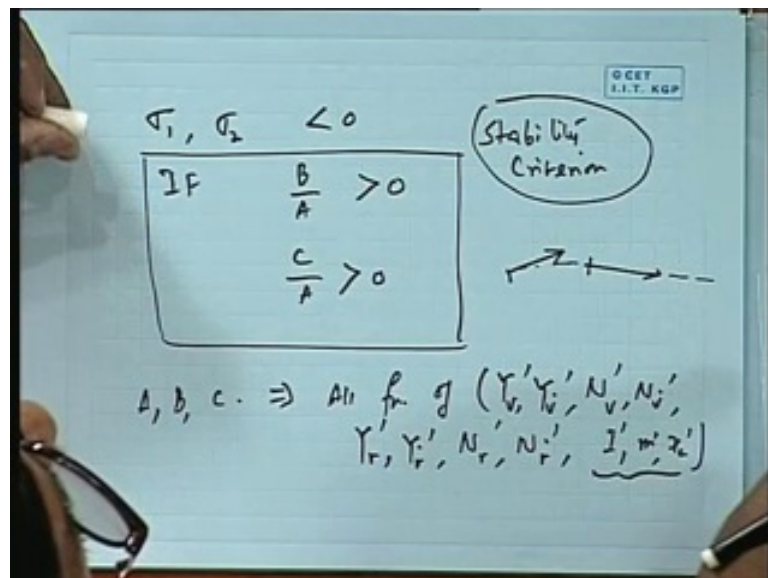 © CET
I.I.T. KGP
σ₁, σ₂ < 0
Stability
Criterion
IF B/A > 0
C/A > 0
A, B, C. ⇒ All fn of (Yv', Yv̇', Nv', Nv̇',
Yr', Yṙ', Nr', Nṙ', I', m', xG')